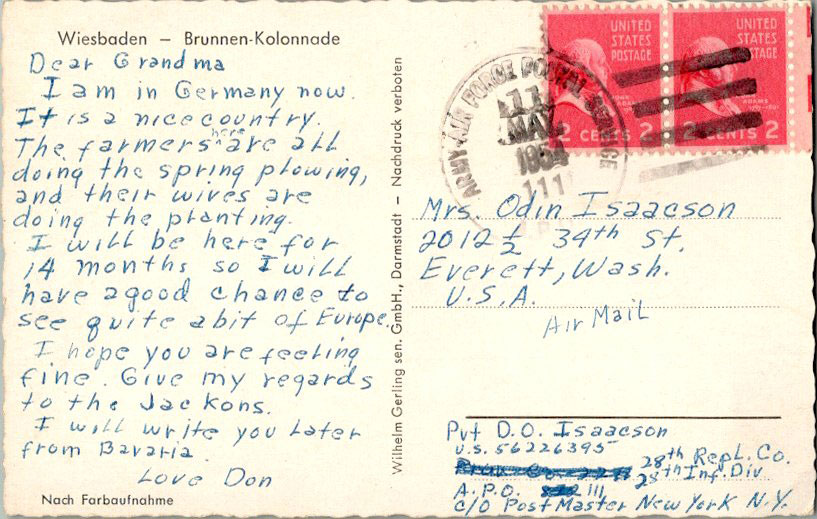 Wiesbaden – Brunnen-Kolonnade
Dear Grandma
I am in Germany now.
It is a nice country.
The farmers here are all
doing the spring plowing,
and their wives are
doing the planting.
I will be here for
14 months so I will
have a good chance to
see quite a bit of Europe.
I hope you are feeling
fine. Give my regards
to the Jackons.
I will write you later
from Bavaria.
Love Don
Nach Farbaufnahme
Wilhelm Gerling sen. GmbH., Darmstadt – Nachdruck verboten
UNITED
STATES
POSTAGE
2 CENTS 2
UNITED
STATES
POSTAGE
ADAMS
2 CENTS 2
ARMY-AIR FORCE POSTAL SERVICE
11
MAY
1954
111
Mrs. Odin Isaacson
2012 1/2 34th St.
Everett, Wash.
U.S.A.
Air Mail
Pvt D.O. Isaacson
U.S. 56226395
28th Repl. Co.
28th Inf. Div
A.P.O. 111
c/o PostMaster New York N.Y.